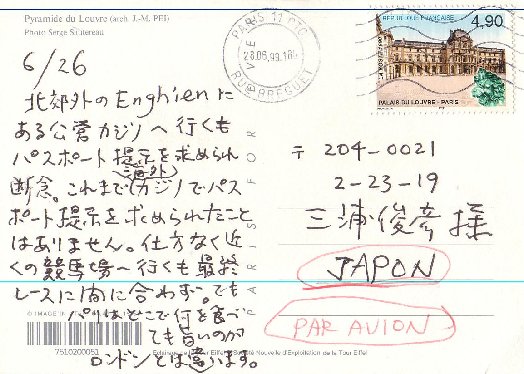 Pyramide du Louvre (arch. J.-M. PEI)
Photo Serge
6/26
北郊外のEnghienに
ある公営カジノへ行くも
パスポート提示を求められ
断念。これまで(海外)カジノでパス
ポート提示を求められたこと
はありません。仕方なく近
くの競馬場へ行くも最終
レースに間に合わず。でも
パリはどこで何を食べ
ても旨いのが
ロンドンとは違います。
© IMAGE'IN
7510200051
PARIS FOR
Eclairage de la Tour Eiffel : Société Nouvelle d'Exploitation de la Tour Eiffel
PARIS 11 PTC
28.06.99.18H
RUE BREGUET
REPUBLIQUE FRANÇAISE
4,90
PALAIS DU LOUVRE - PARIS
〒 204-0021
2-23-19
三浦俊彦 様
JAPON
PAR AVION